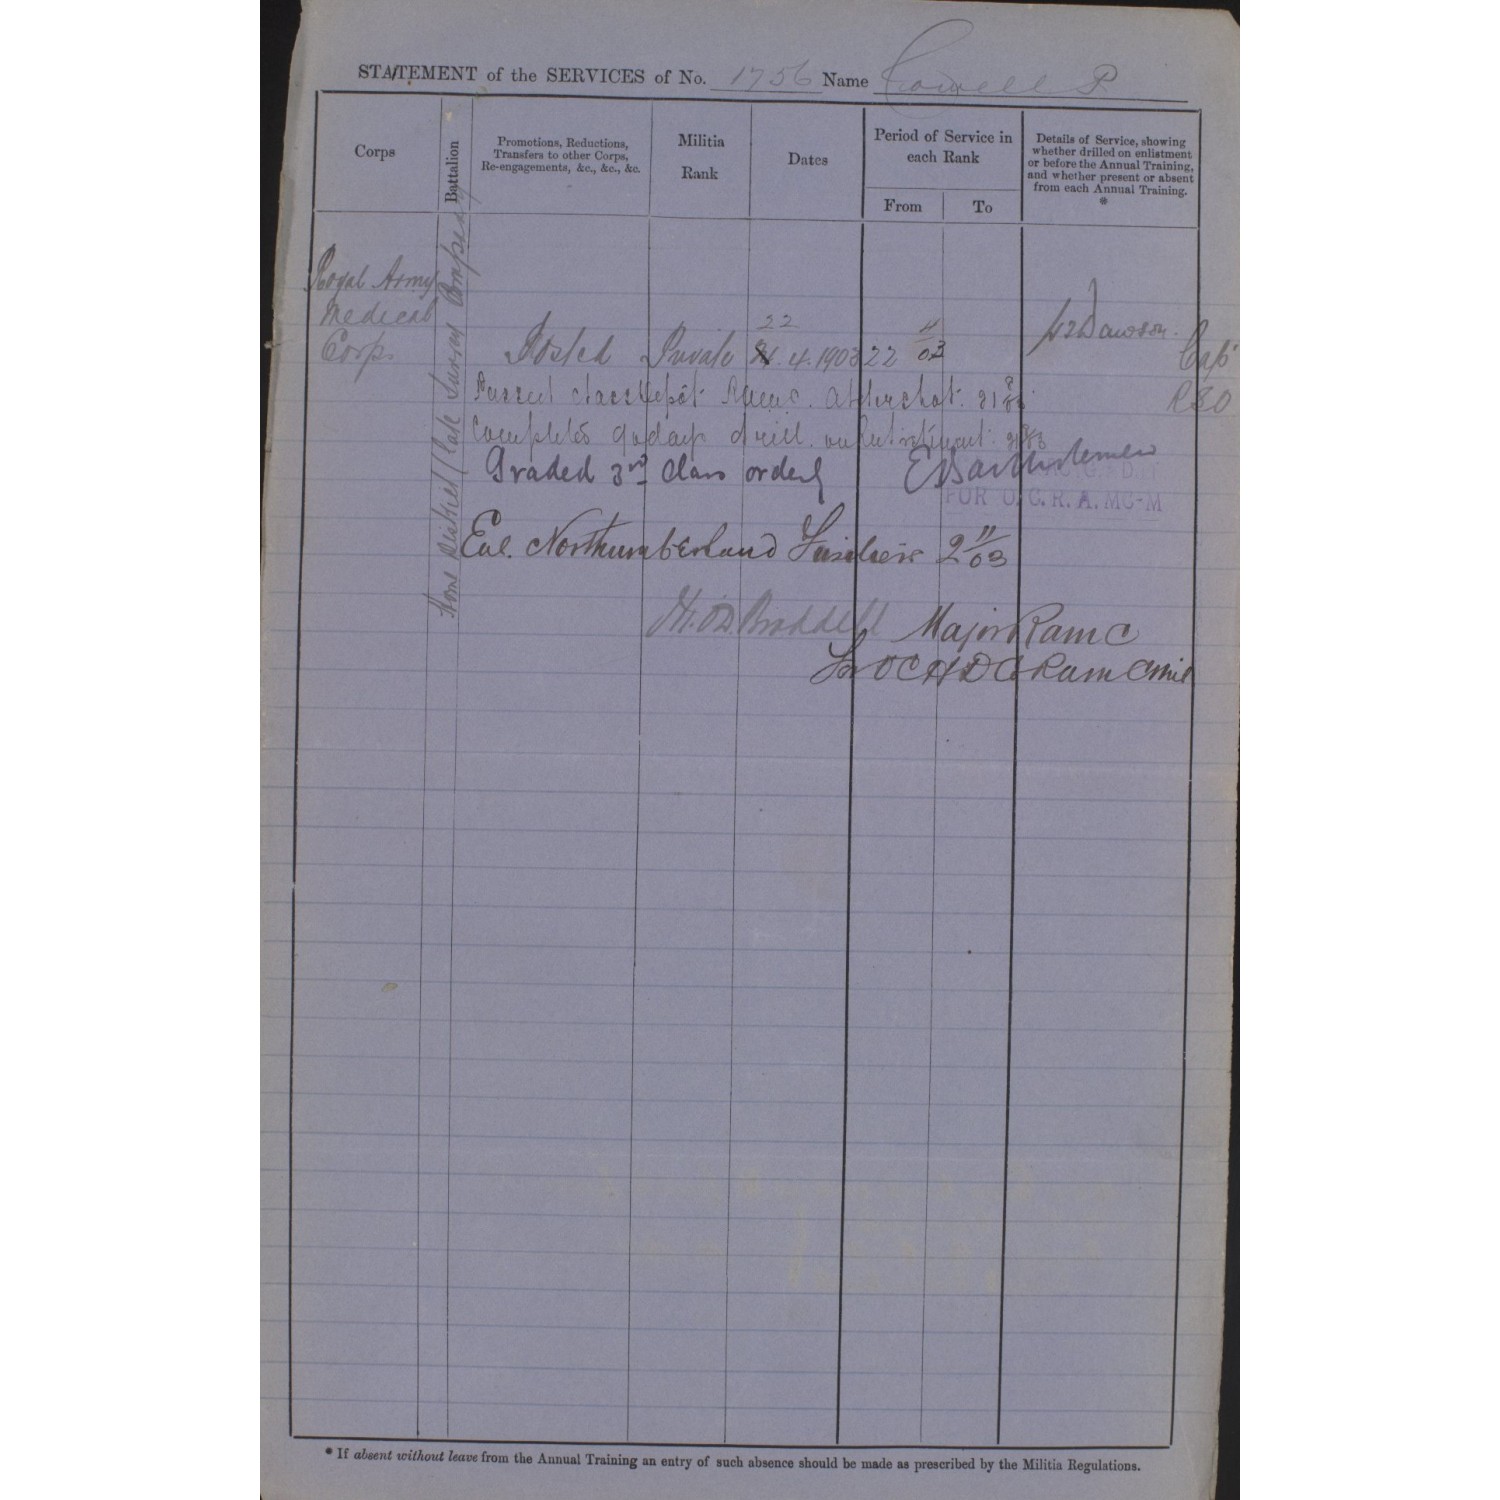 STATEMENT of the SERVICES of No. 1756 Name Cowell P
Corps
Battalion
Promotions, Reductions,
Transfers to other Corps,
Re-engagements, &c., &c., &c.
Militia
Rank
Dates
Period of Service in
each Rank
From
To
Details of Service, showing
whether drilled on enlistment
or before the Annual Training,
and whether present or absent
from each Annual Training.
*
Royal Army
Medical
Corps
Home District (late Surrey Company)
22
Posted Private 21.4.1903 22 4/03
Dawson. Cap
Passed class Depôt RAMC. Aldershot. 21
Completed days drill. on Enlistment.
Graded 3rd Class orderly
FOR O.C.R.A.MC-M
Enl. Northumberland Fusiliers 2 11/03
Major RAMC
for OC HDC RAMC Mil
* If absent without leave from the Annual Training an entry of such absence should be made as prescribed by the Militia Regulations.